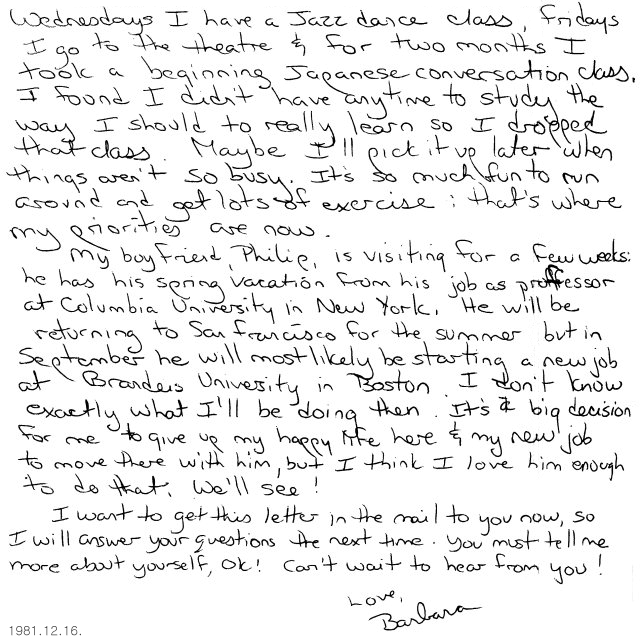 Wednesdays I have a Jazz dance class, fridays
I go to the theatre & for two months I
took a beginning Japanese conversation class.
I found I didn't have anytime to study the
way I should to really learn so I dropped
that class. Maybe I'll pick it up later when
things aren't so busy. It's so much fun to run
around and get lots of exercise: that's where
my priorities are now.
My boyfriend, Philip, is visiting for a few weeks:
he has his spring vacation from his job as proffessor
at Columbia University in New York. He will be
returning to San Francisco for the summer but in
September he will most likely be starting a new job
at Brandeis University in Boston. I don't know
exactly what I'll be doing then. It's a big decision
for me to give up my happy life here & my new job
to move there with him, but I think I love him enough
to do that. We'll see!
I want to get this letter in the mail to you now, so
I will answer your questions the next time. You must tell me
more about yourself, OK! Can't wait to hear from you!
Love,
Barbara
1981.12.16.